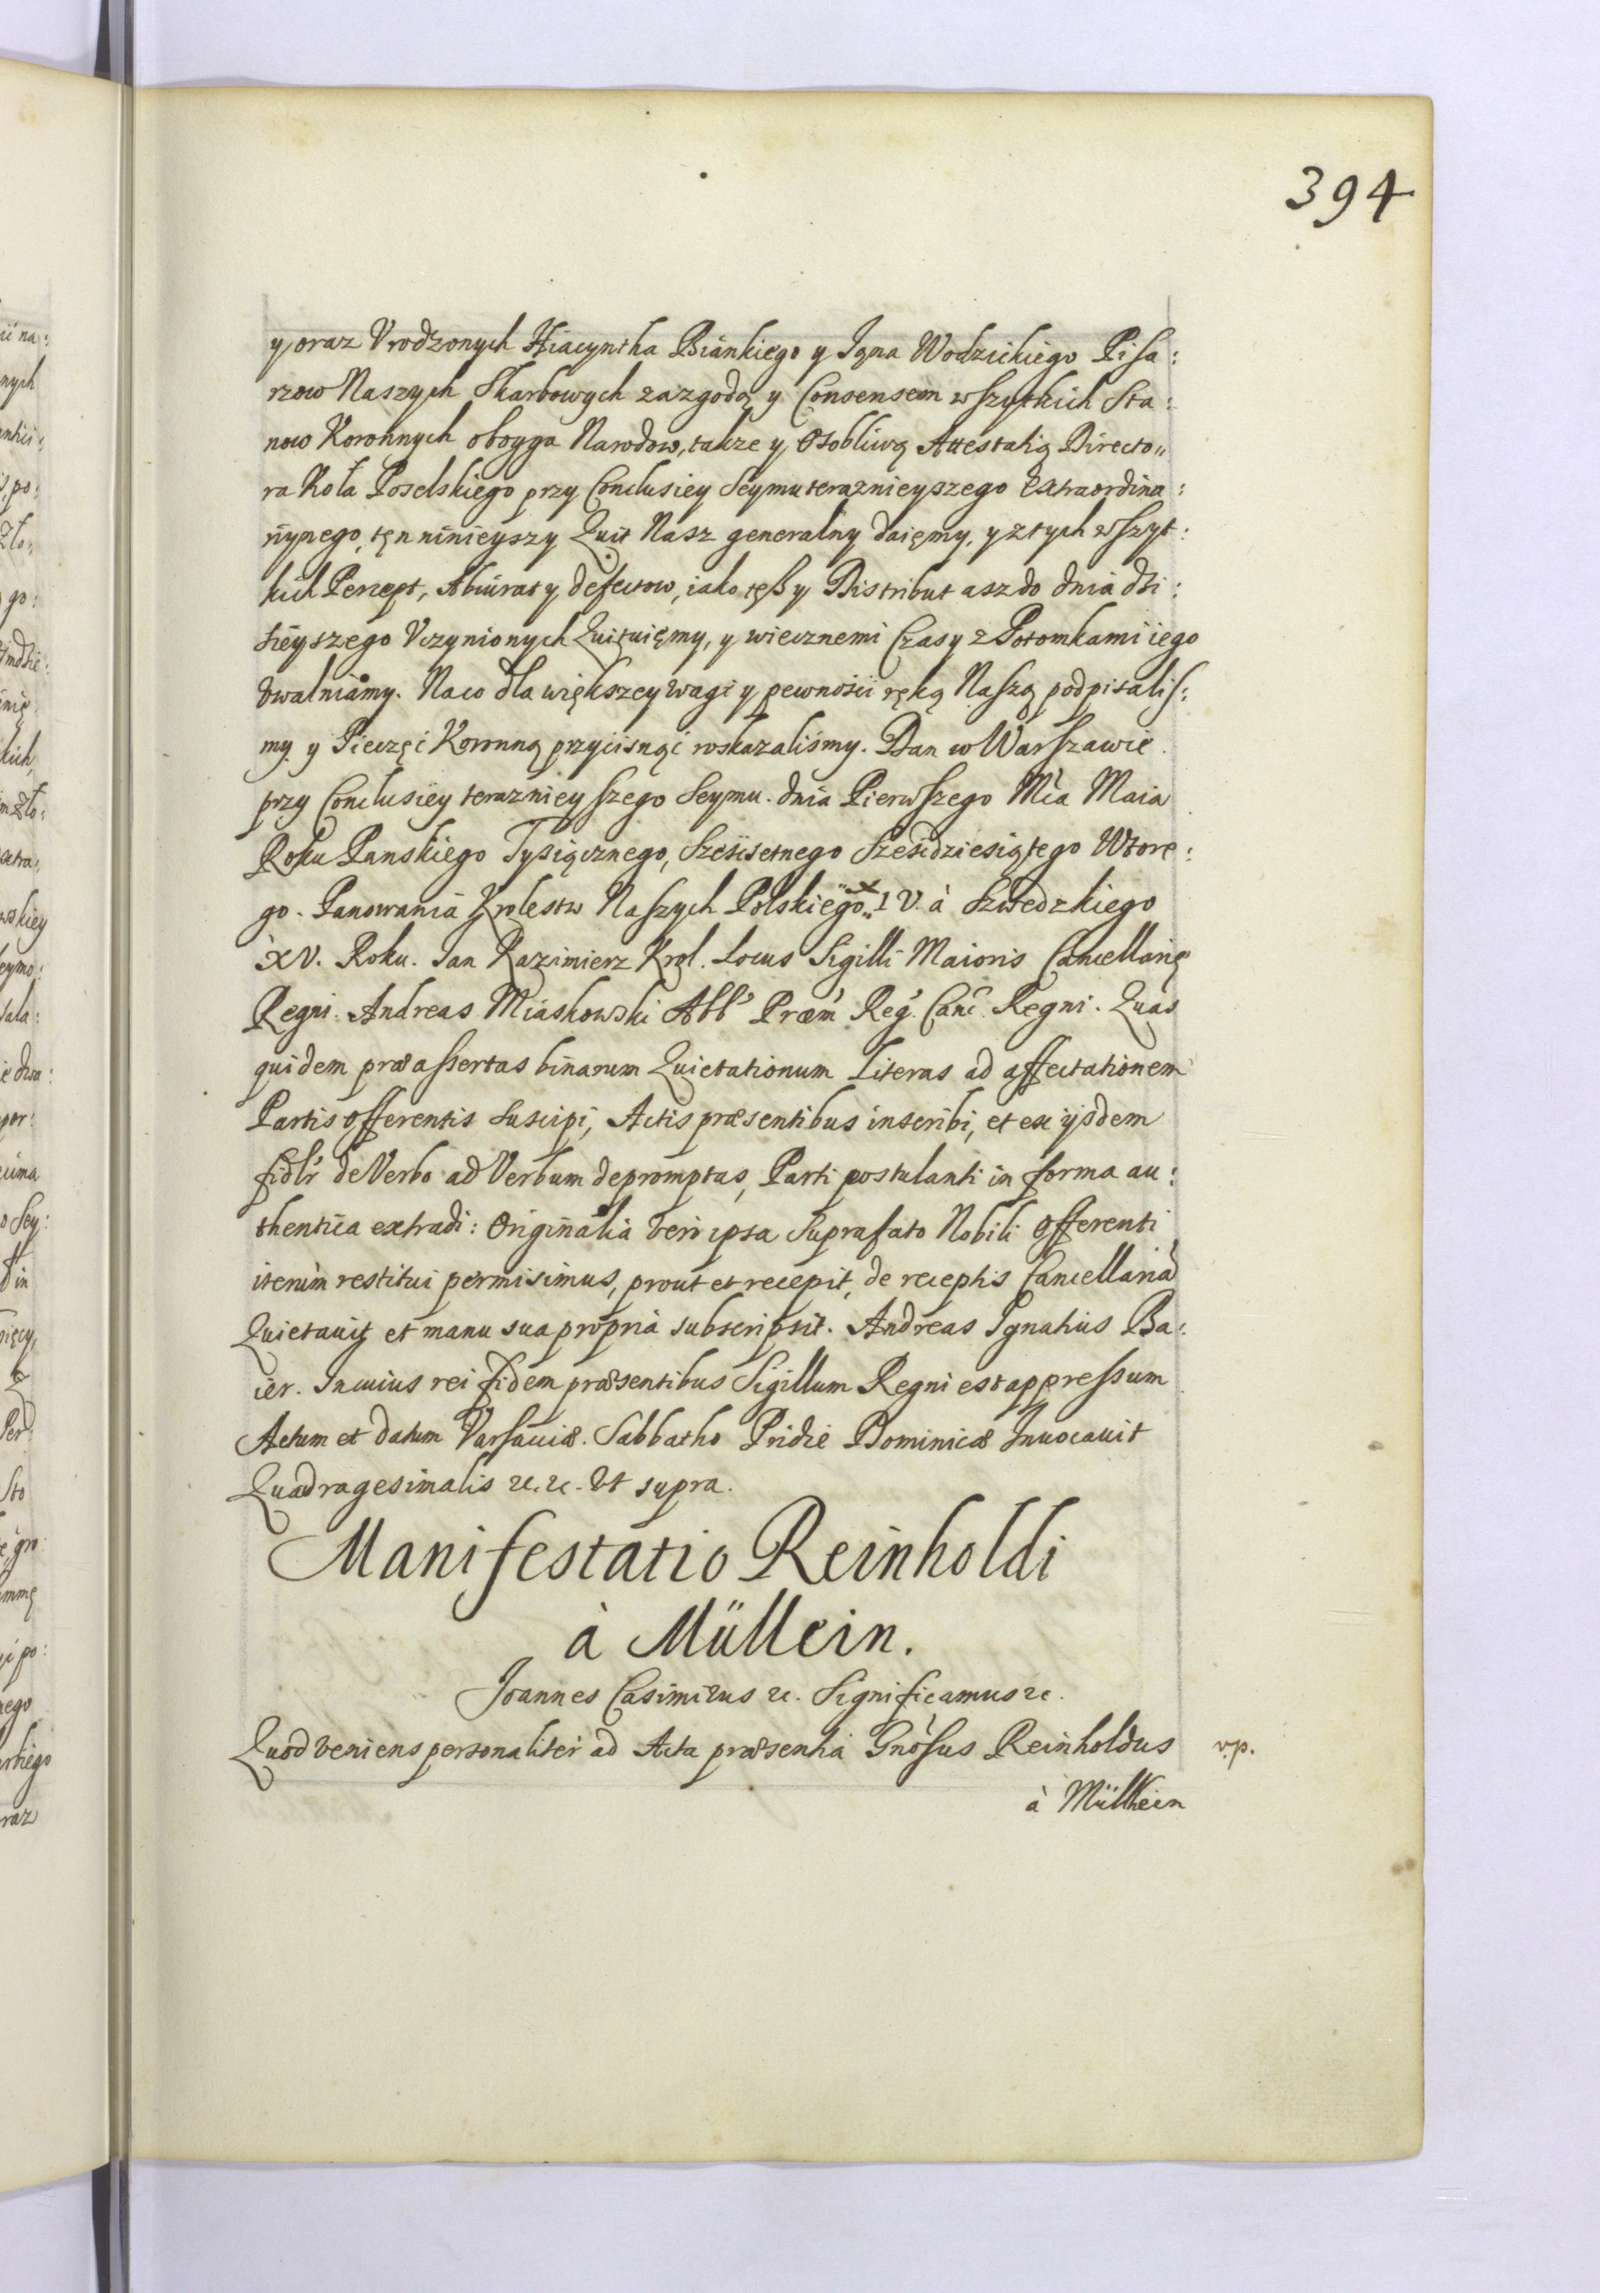 394
y oraz Vrodzonych Hiacyntha Biankiego y Jgna Wodzickiego Pisa:
rzow Naszych Skarbowych zazgodą y Consensem wszytkich Sta:
now Koronnych oboyga Narodow, takze y Osobliwą Attestatią Directo„
ra Koła Poselskiego przy Conclusiey Seymu teraznieyszego Extraordina:
ryinego, tęn ninieyszy Quit Nasz generalny daięmy, y z tych wszyt:
kich Percept, Abiurat y defectow, iako tęß y Distribut asz do dnia dzi:
sieyszego Vczynionych Quituięmy, y wiecznemi Czasy z Potomkami iego
vwalniamy. Naco dla większey wagi y pewnośći ręką Naszą podpisaliś:
my. y Pieczęć Koronną przyćisnąć roskazaliśmy. Dan w Warszawie
przy Conclusiey teraznieyszego Seymu. dnia Pierwszego Mca Maia
Roku Panskiego Tysiącznego, Sześćsetnego Sześćdziesiątego Wtore:
go. Panowania Krolestw Naszych Polskiego XIV. à Szwedzkiego
XV. Roku. Jan Kazimierz Krol. Locus Sigilli Maioris Cancellarię
Regni. Andreas Miaskowski Abb' Præm' Reg' Canc. Regni. Quas
quidem præassertas binarum Quietationum Literas ad affectationem
Partis offerentis suscipi, Actis præsentibus inscribi, et ex ijsdem
fidlr' de Verbo ad Verbum depromptas, Parti postulanti in forma au:
thentica extradi: Originalia vero ipsa suprafato Nobili offerenti
iterum restitui permisimus, prout et recepit, de receptis Cancellariā
Quietauit et manu sua propria subscripsit. Andreas Jgnatius Ba:
ier. Incuius rei fidem præsentibus Sigillum Regni est appressum
Actum et datum Varsauiæ. Sabbatho Pridie Dominicæ Jnuocauit
Quadragesimalis &c. &c. Vt supra.
Manifestatio Reinholdi
à Müllein.
Joannes Casimirus &c. Significamus &c.
Quod veniens personaliter ad Acta præsentia Gnosus Reinholdus v.p.
à Müllhein